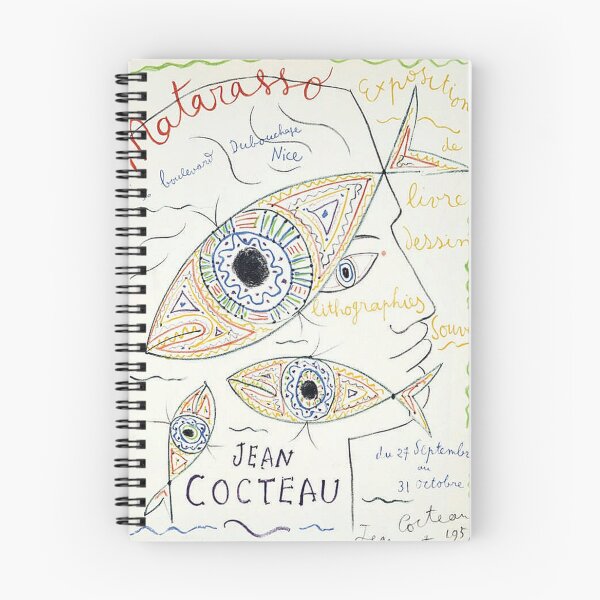 Matarasso
boulevard Dubouchage
Nice
Exposition
de
livre
dessin
lithographies
Souv
JEAN
COCTEAU
du 27 Septembre
au
31 octobre
Cocteau
Jean
195